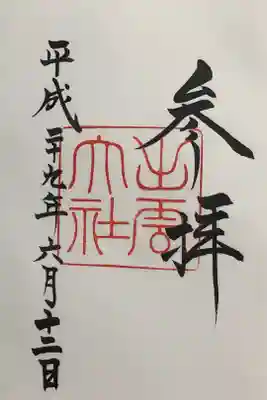 参拝
出雲
大社
平成二十九年六月十三日